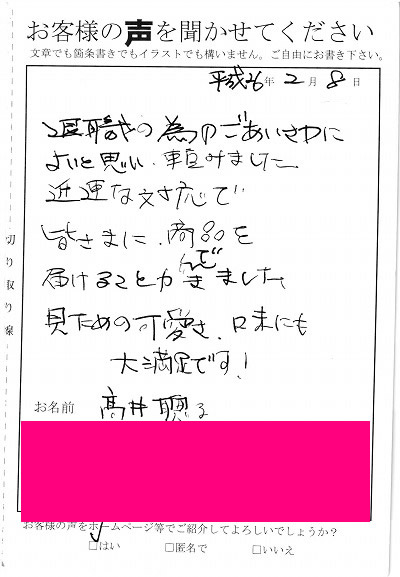 お客様の声を聞かせてください
文章でも箇条書きでもイラストでも構いません。ご自由にお書き下さい。
平成26年 2月 8日
退職の為のごあいさつに
よいと思い、頼みました
迅速な対応で
皆さまに、商品を
届けることができました
見ための可愛さ、口味にも
大満足です!
切り取り線
お名前 高井
お客様の声をホームページ等でご紹介してよろしいでしょうか?
□はい □匿名で □いいえ